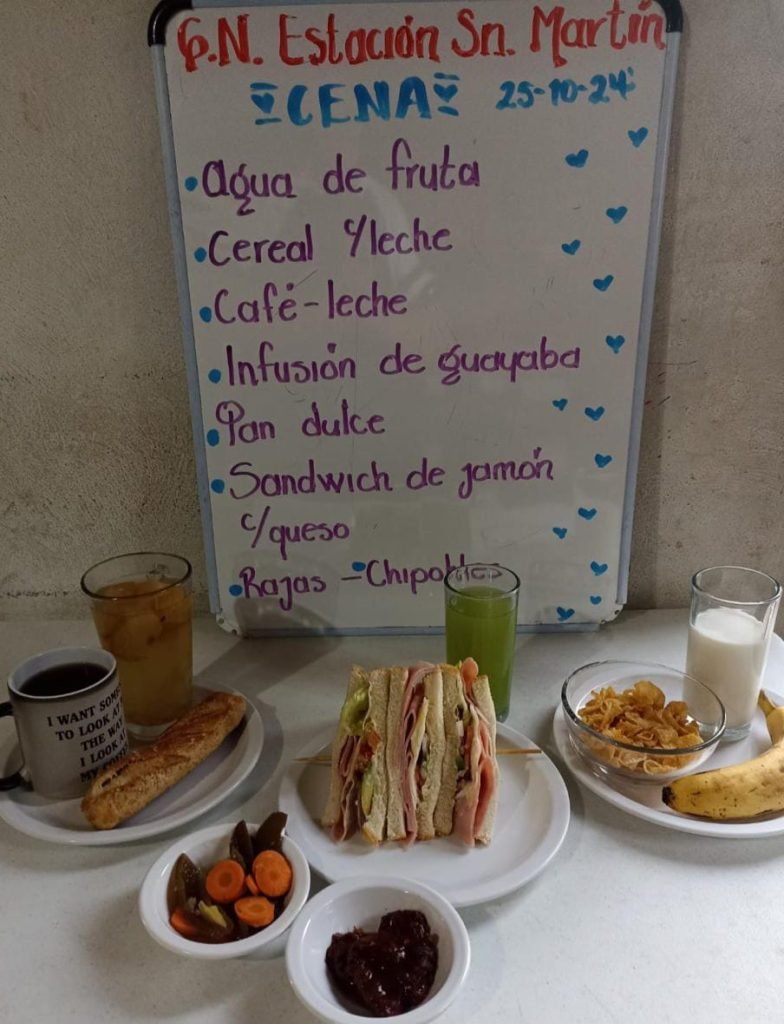 G.N. Estación Sn. Martín
CENA 25-10-24
• Agua de fruta
• Cereal c/leche
• Café-leche
• Infusión de guayaba
• Pan dulce
• Sandwich de jamón
c/queso
• Rajas - •Chipotles
I WANT SOME
TO LOOK AT
THE WAY
I LOOK A
MY